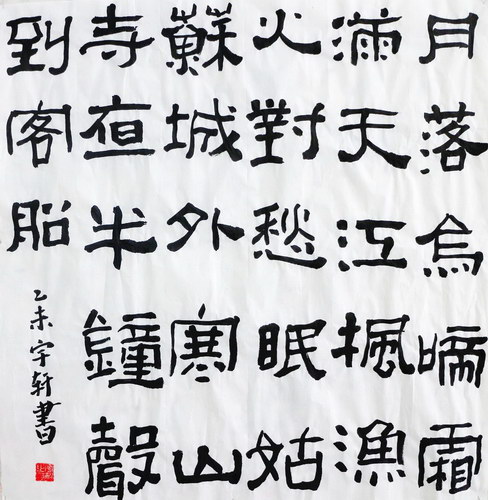 月落烏啼霜
滿天江楓漁
火對愁眠姑
蘇城外寒山
寺夜半鐘聲
到客船
乙未宇軒書